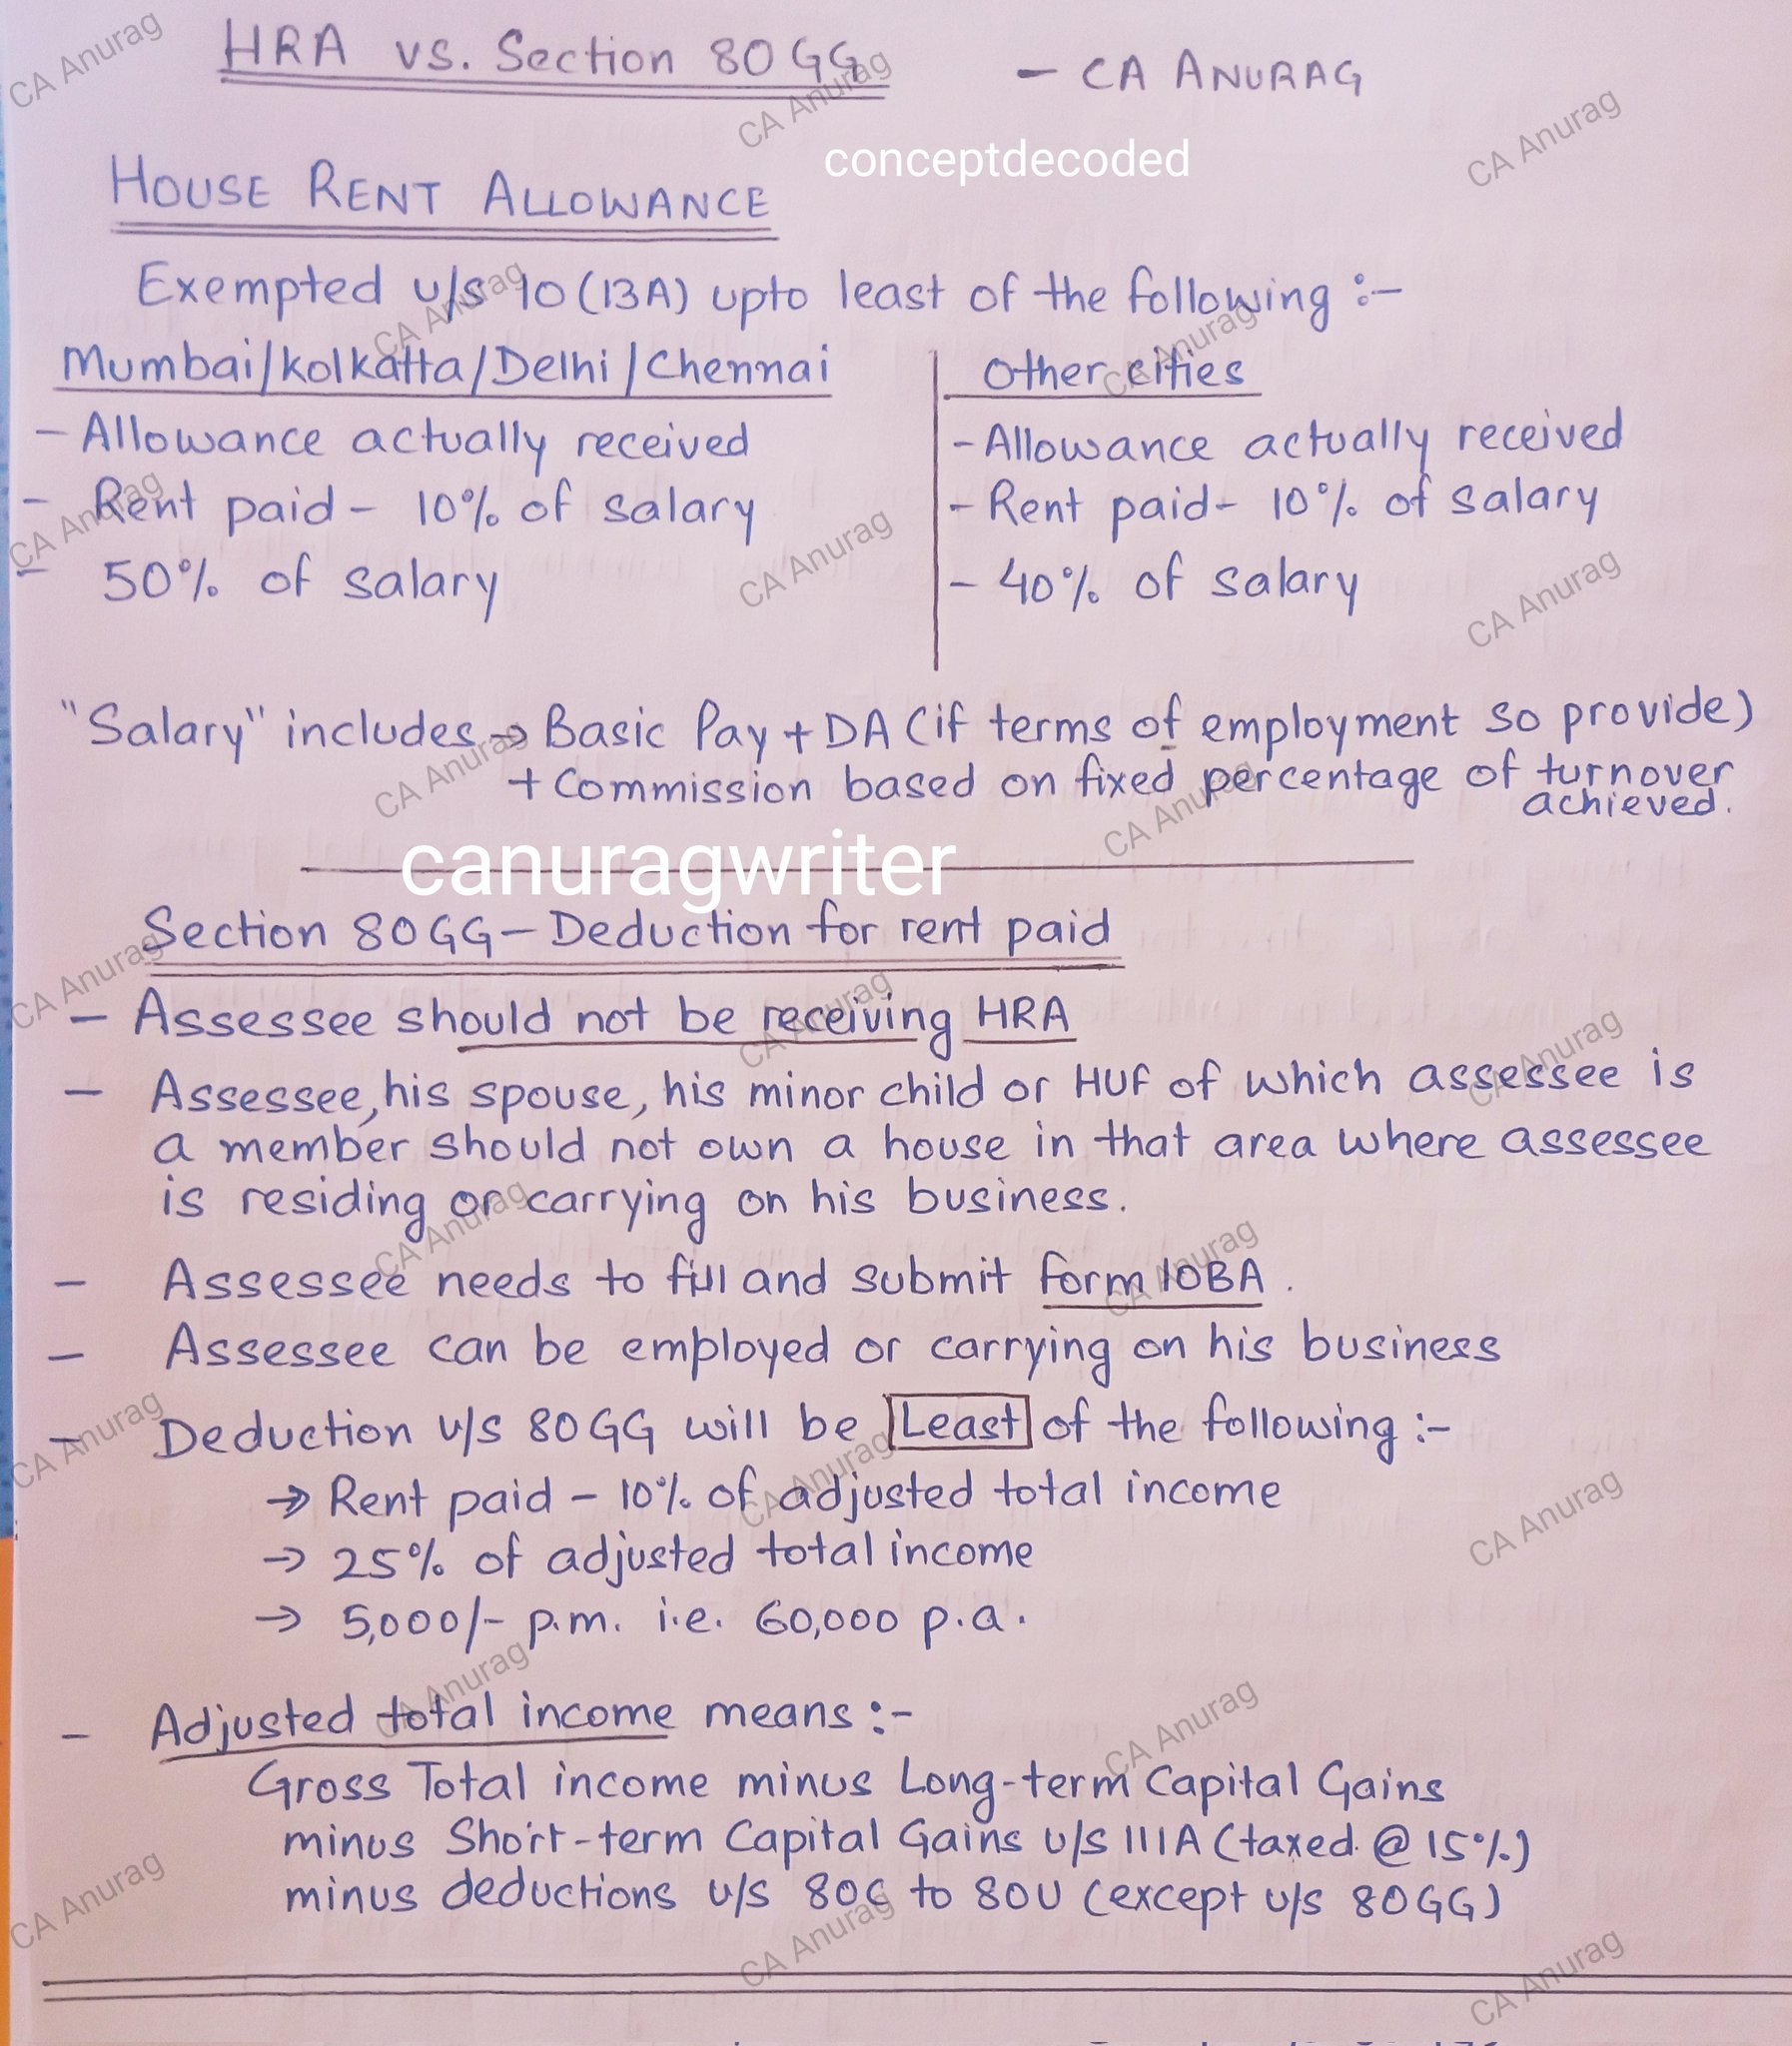 HRA vs. Section 80GG - CA ANURAG
conceptdecoded
HOUSE RENT ALLOWANCE
Exempted u/s 10(13A) upto least of the following :-
Mumbai/Kolkatta/Delhi/Chennai
- Allowance actually received
- Rent paid - 10% of salary
- 50% of salary
Other cities
- Allowance actually received
- Rent paid - 10% of salary
- 40% of salary
"Salary" includes → Basic Pay + DA (if terms of employment so provide)
+ Commission based on fixed percentage of turnover
achieved.
canuragwriter
Section 80GG - Deduction for rent paid
- Assessee should not be receiving HRA
- Assessee, his spouse, his minor child or HUF of which assessee is
a member should not own a house in that area where assessee
is residing or carrying on his business.
- Assessee needs to fill and submit form 10BA.
- Assessee can be employed or carrying on his business
- Deduction u/s 80GG will be Least of the following :-
→ Rent paid - 10% of adjusted total income
→ 25% of adjusted total income
→ 5,000/- p.m. i.e. 60,000 p.a.
- Adjusted total income means :-
Gross Total income minus Long-term Capital Gains
minus Short-term Capital Gains u/s 111A (taxed @ 15%)
minus deductions u/s 80C to 80U (except u/s 80GG)
CA Anurag